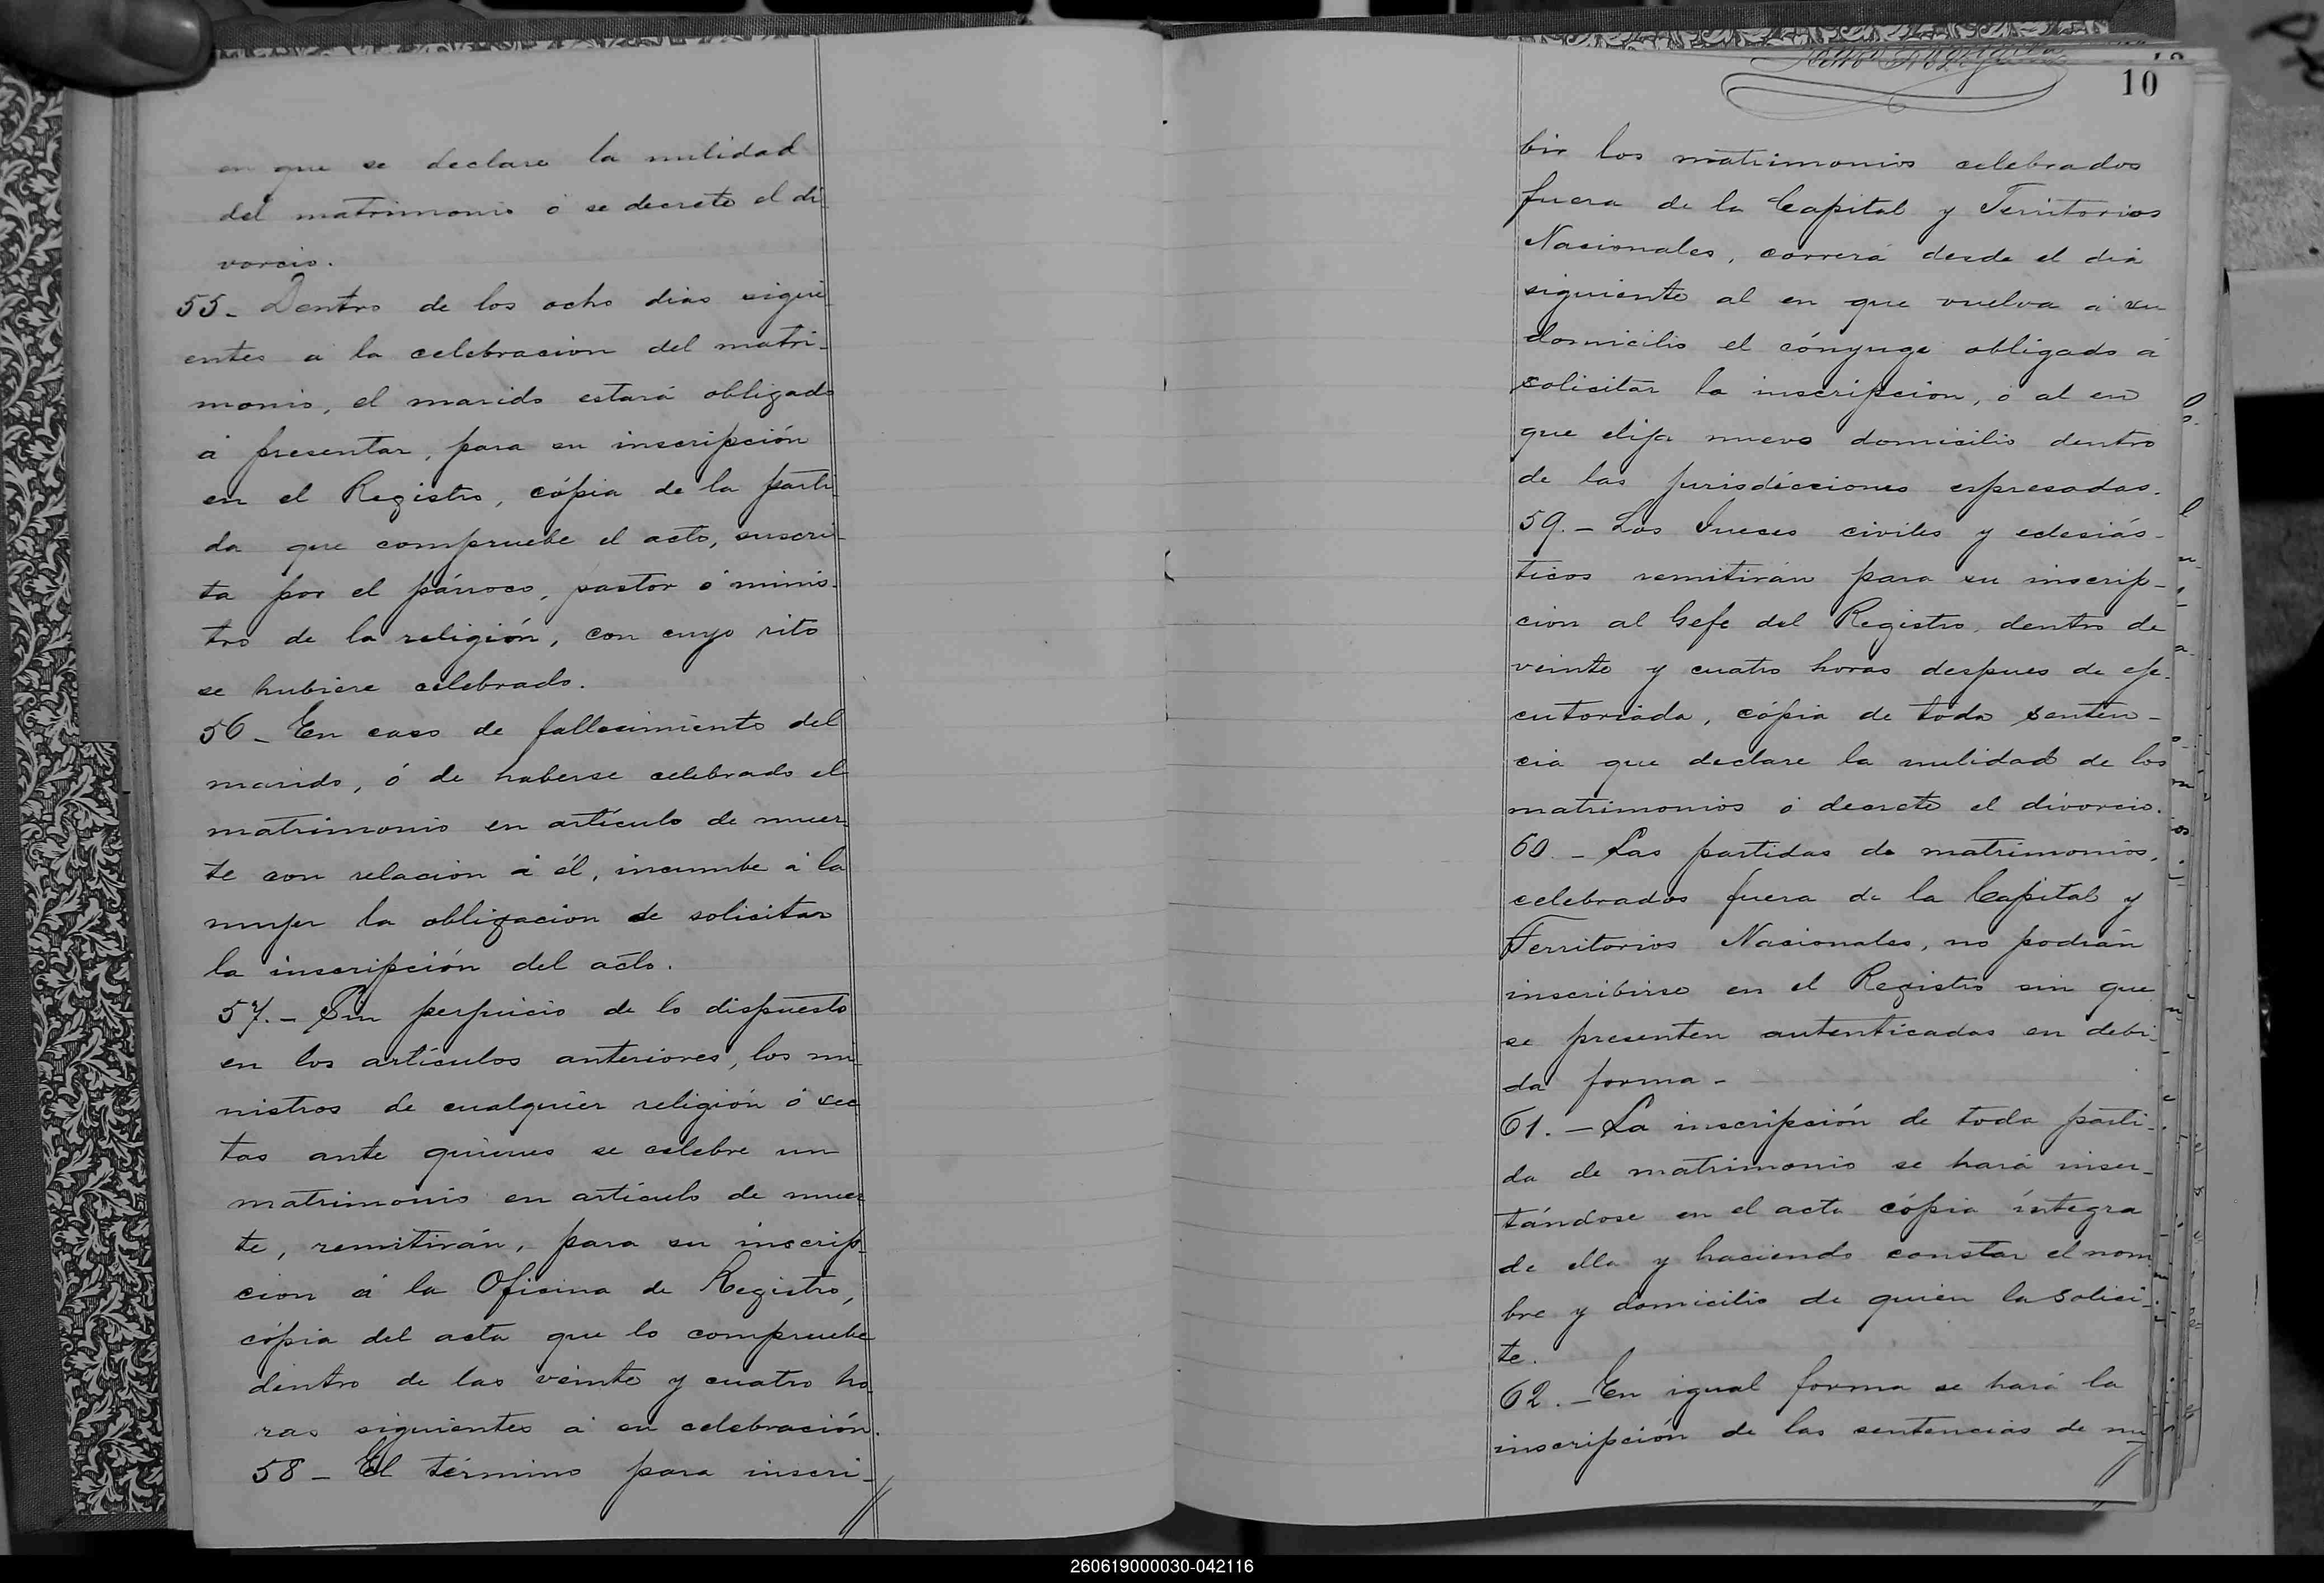 en que se declare la nulidad
del matrimonio ó se decrete el di
vorcio.
55- Dentro de los ocho dias sigui
entes á la celebracion del matri-
monio, el marido estará obligado
á presentar, para su inscripción
en el Registro, cópia de la parti
da que compruebe el acto, suscri-
ta por el párroco, pastor ó minis-
tro de la religión, con cuyo rito
se hubiere celebrado.
56- En caso de fallecimiento del
marido, ó de haberse celebrado el
matrimonio en artículo de muer-
te con relacion á él, incumbe á la
mujer la obligacion de solicitar
la inscripción del acto.
57.- Sin perjuicio de lo dispuesto
en los artículos anteriores, los mi
nistros de cualquier religión ó sec
tas ante quienes se celebre un
matrimonio en artículo de muer
te, remitirán, para su inscrip-
cion á la Oficina de Registro,
cópia del acta que lo compruebe
dentro de las veinte y cuatro ho-
ras siguientes á su celebración.
58- El término para inscri-
10
bir los matrimonios celebrados
fuera de la Capital y Territorios
Nacionales, correrá desde el dia
siguiente al en que vuelva á su
domicilio el cónyuge obligado á
solicitar la inscripcion, ó al en
que elija nuevo domicilio dentro
de las jurisdicciones espresadas.
59.- Los Jueces civiles y eclesiás-
ticos remitirán para su inscrip-
cion al Gefe del Registro, dentro de
veinte y cuatro horas despues de eje-
cutoriada, cópia de toda senten-
cia que declare la nulidad de los
matrimonios ó decrete el divorcio.
60.- Las partidas de matrimonios,
celebrados fuera de la Capital y
Territorios Nacionales, no podrán
inscribirse en el Registro sin que
se presenten autenticadas en debi-
da forma-
61.- La inscripción de toda parti-
da de matrimonio se hará inser-
tándose en el acta cópia íntegra
de ella y haciendo constar el nom
bre y domicilio de quien la solici-
te.
62.- En igual forma se hará la
inscripción de las sentencias de nu
260619000030-042116